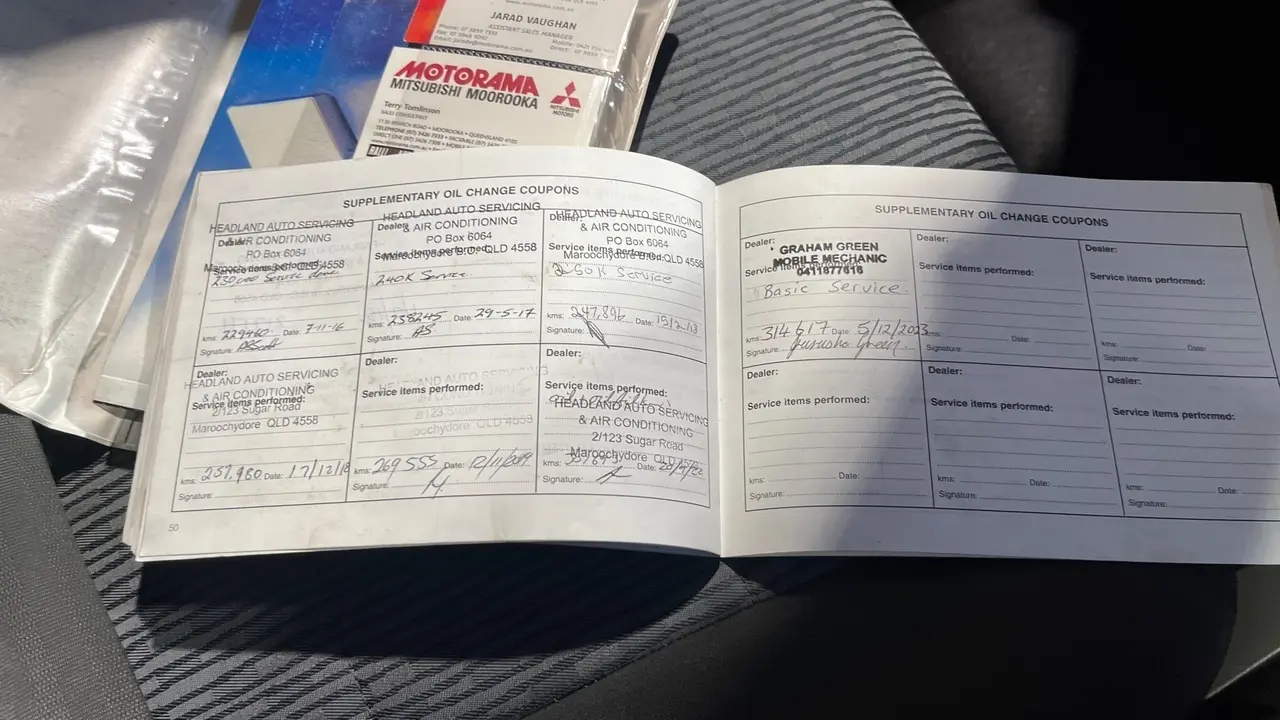 www.motorama.com.au
JARAD VAUGHAN
ASSISTANT SALES MANAGER
MOTORAMA
MITSUBISHI MOOROOKA
MITSUBISHI
MOTORS
Terry Tomlinson
SALES CONSULTANT
SUPPLEMENTARY OIL CHANGE COUPONS
HEADLAND AUTO SERVICING
Dealer:
& AIR CONDITIONING
PO Box 6064
Maroochydore QLD 4558
Service items performed:
230,000 Service
kms: 229460 Date: 7-11-16
Signature:
HEADLAND AUTO SERVICING
Dealer:
& AIR CONDITIONING
PO Box 6064
QLD 4558
Service items performed:
240K Service
kms: 238245 Date: 29-5-17
Signature: AS
HEADLAND AUTO SERVICING
Dealer:
& AIR CONDITIONING
PO Box 6064
Service items performed:
Maroochydore QLD 4558
250K Service
kms: 247,896 Date:
Signature:
Dealer:
HEADLAND AUTO SERVICING
& AIR CONDITIONING
Service items performed:
2/123 Sugar Road
Maroochydore QLD 4558
kms: 257,980 Date: 17/12/18
Signature:
Dealer:
HEADLAND AUTO SERVICING
Service items performed:
2/123 Sugar Road
Maroochydore QLD 4558
kms: 269 555 Date: 12/11/2019
Signature:
Dealer:
Service items performed:
HEADLAND AUTO SERVICING
& AIR CONDITIONING
2/123 Sugar Road
Maroochydore QLD 4558
kms: Date:
Signature:
50
SUPPLEMENTARY OIL CHANGE COUPONS
Dealer:
GRAHAM GREEN
MOBILE MECHANIC
0411877616
Service items performed:
Basic Service.
kms: 314617 Date: 5/12/2023
Signature: Green
Dealer:
Service items performed:
kms: Date:
Signature:
Dealer:
Service items performed:
kms: Date:
Signature:
Dealer:
Service items performed:
kms: Date:
Signature:
Dealer:
Service items performed:
kms: Date:
Signature:
Dealer:
Service items performed:
kms: Date:
Signature: